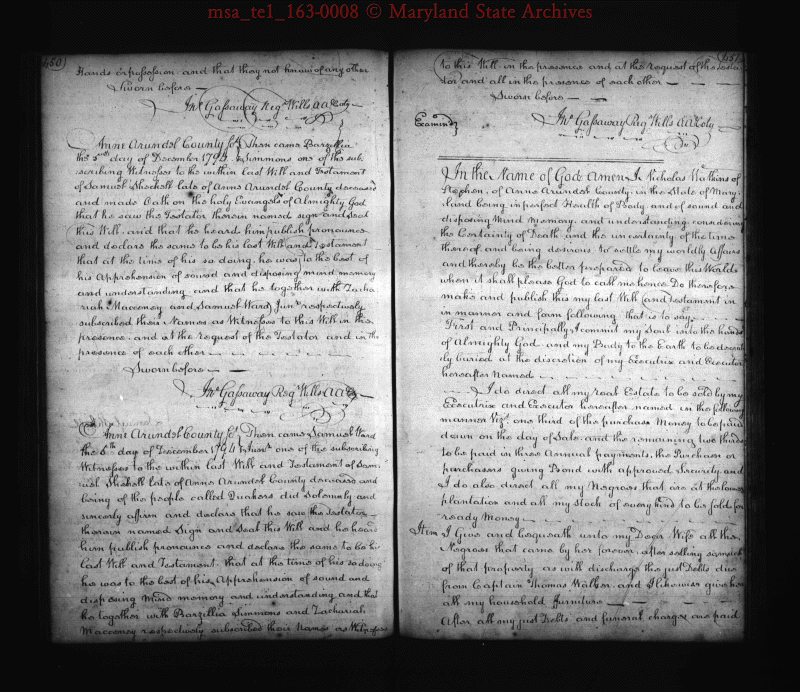 msa_te1_163-0008 © Maryland State Archives
450)
Hands or possession and that they not know of any other
Sworn before
Jno. Gassaway Regr. Wills A A Coty
Anne Arundel County Sct. Then came Barzillia
the 5th day of December 1794 } Simmons one of the sub
scribing Witnesses to the within last Will and Testament
of Samuel Shekell late of Anne Arundel County deceased
and made Oath on the holy Evangels of Almighty God
that he saw the Testator therein named sign and seal
this Will and that he heard him publish pronounce
and declare the same to be his last Will and Testament
that at the time of his so doing he was to the best of
his Apprehension of sound and disposing mind memory
and understanding and that he together with Zacha
riah Macceney and Samuel Ward Junr. respectively
subscribed their Names as Witnesses to this Will in the
presence and at the request of the Testator and in the
presence of each other
Sworn before
Jno. Gassaway Regr. Wills A A Coty
Anne Arundel County Sct. Then came Samuel Ward
the 5th day of December 1794 } Junr. one of the subscribing
Witnesses to the within last Will and Testament of Sam
uel Shekell late of Anne Arundel County deceased and
being of the people called Quakers did solemnly and
sincerely affirm and declare that he saw the Testator
therein named Sign and Seal this Will and he heard
him publish pronounce and declare the same to be his
last Will and Testament that at the time of his so doing
he was to the best of his Apprehension of sound and
disposing Mind memory and understanding and that
he together with Barzillia Simmons and Zachariah
Macceney respectively subscribed their names as Witnesses
451
to this Will in the presence and at the request of the Testa
tor and all in the presence of each other
Sworn before
Jno. Gassaway Regr. Wills A A Coty
Examined
In the Name of God Amen I Nicholas Watkins of
Stephen, of Anne Arundel County in the State of Mary
land being in perfect Health of Body and of sound and
disposing Mind Memory and understanding considering
the Certainty of Death and the uncertainty of the time
thereof and being desirous to settle my worldly Affairs
and thereby be the better prepared to leave this World
when it shall please God to call me hence Do therefore
make and publish this my last Will and Testament in
in manner and form following that is to say
First and Principally I commit my Soul into the hands
of Almighty God and my Body to the Earth to be decent
ly buried at the discretion of my Executrix and Executor
hereafter Named
I do direct all my real Estate to be sold by my
Executrix and Executor hereafter named in the following
manner Vizt. one third of the purchase Money to be paid
down on the day of Sale and the remaining two thirds
to be paid in three Annual payments, the Purchaser or
purchasers giving Bond with approved Security and
I do also direct all my Negroes that are at the lower
plantation and all my stock of every kind to be sold for
ready Money
Item I Give and bequeath unto my Dear Wife all the
Negroes that came by her forever after selling
of that property as will discharge the just Debts due
from Captain Thomas Walker and I likewise give her
all my household furniture
After all my just Debts and funeral charges are paid